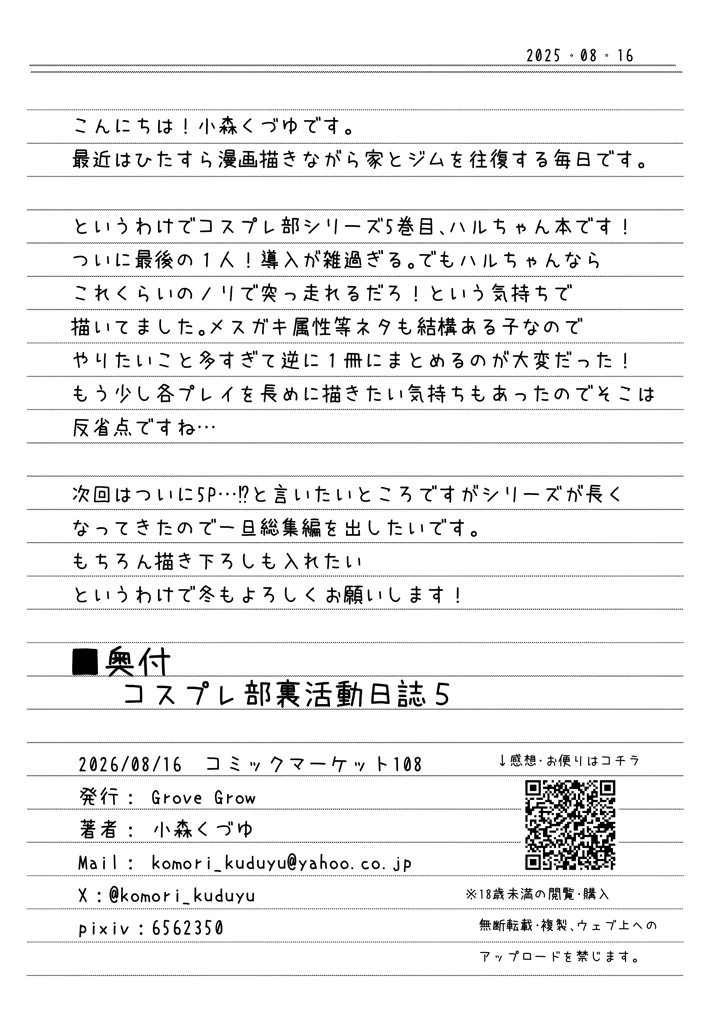 2025・08・16
こんにちは！小森くづゆです。
最近はひたすら漫画描きながら家とジムを往復する毎日です。
というわけでコスプレ部シリーズ5巻目、ハルちゃん本です！
ついに最後の１人！導入が雑過ぎる。でもハルちゃんなら
これくらいのノリで突っ走れるだろ！という気持ちで
描いてました。メスガキ属性等ネタも結構ある子なので
やりたいこと多すぎて逆に１冊にまとめるのが大変だった！
もう少し各プレイを長めに描きたい気持ちもあったのでそこは
反省点ですね…
次回はついに5P…⁉と言いたいところですがシリーズが長く
なってきたので一旦総集編を出したいです。
もちろん描き下ろしも入れたい
というわけで冬もよろしくお願いします！
■奥付
コスプレ部裏活動日誌５
2026/08/16　コミックマーケット108
発行： Grove Grow
著者： 小森くづゆ
Mail： komori_kuduyu@yahoo.co.jp
X：@komori_kuduyu
pixiv：6562350
↓感想・お便りはコチラ
※18歳未満の閲覧・購入
無断転載・複製、ウェブ上への
アップロードを禁じます。